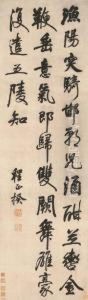 漁陽突騎邯鄲兒酒酣並轡金
鞭垂意氣即歸雙闕舞雄豪
復遣五陵知
程正揆